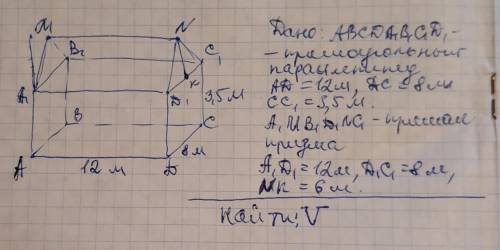 M
N
B₁
C₁
K
A₁
D₁
3,5 м
B
C
A
12 м
D
8 м
Дано: ABCDA₁B₁C₁D₁-
- прямоугольный
параллелепипед
AD = 12 м, DC = 8 м
CC₁ = 3,5 м.
A₁MB₁D₁NC₁ - прямая
призма
A₁D₁ = 12 м, D₁C₁ = 8 м,
NK = 6 м.
Найти: V